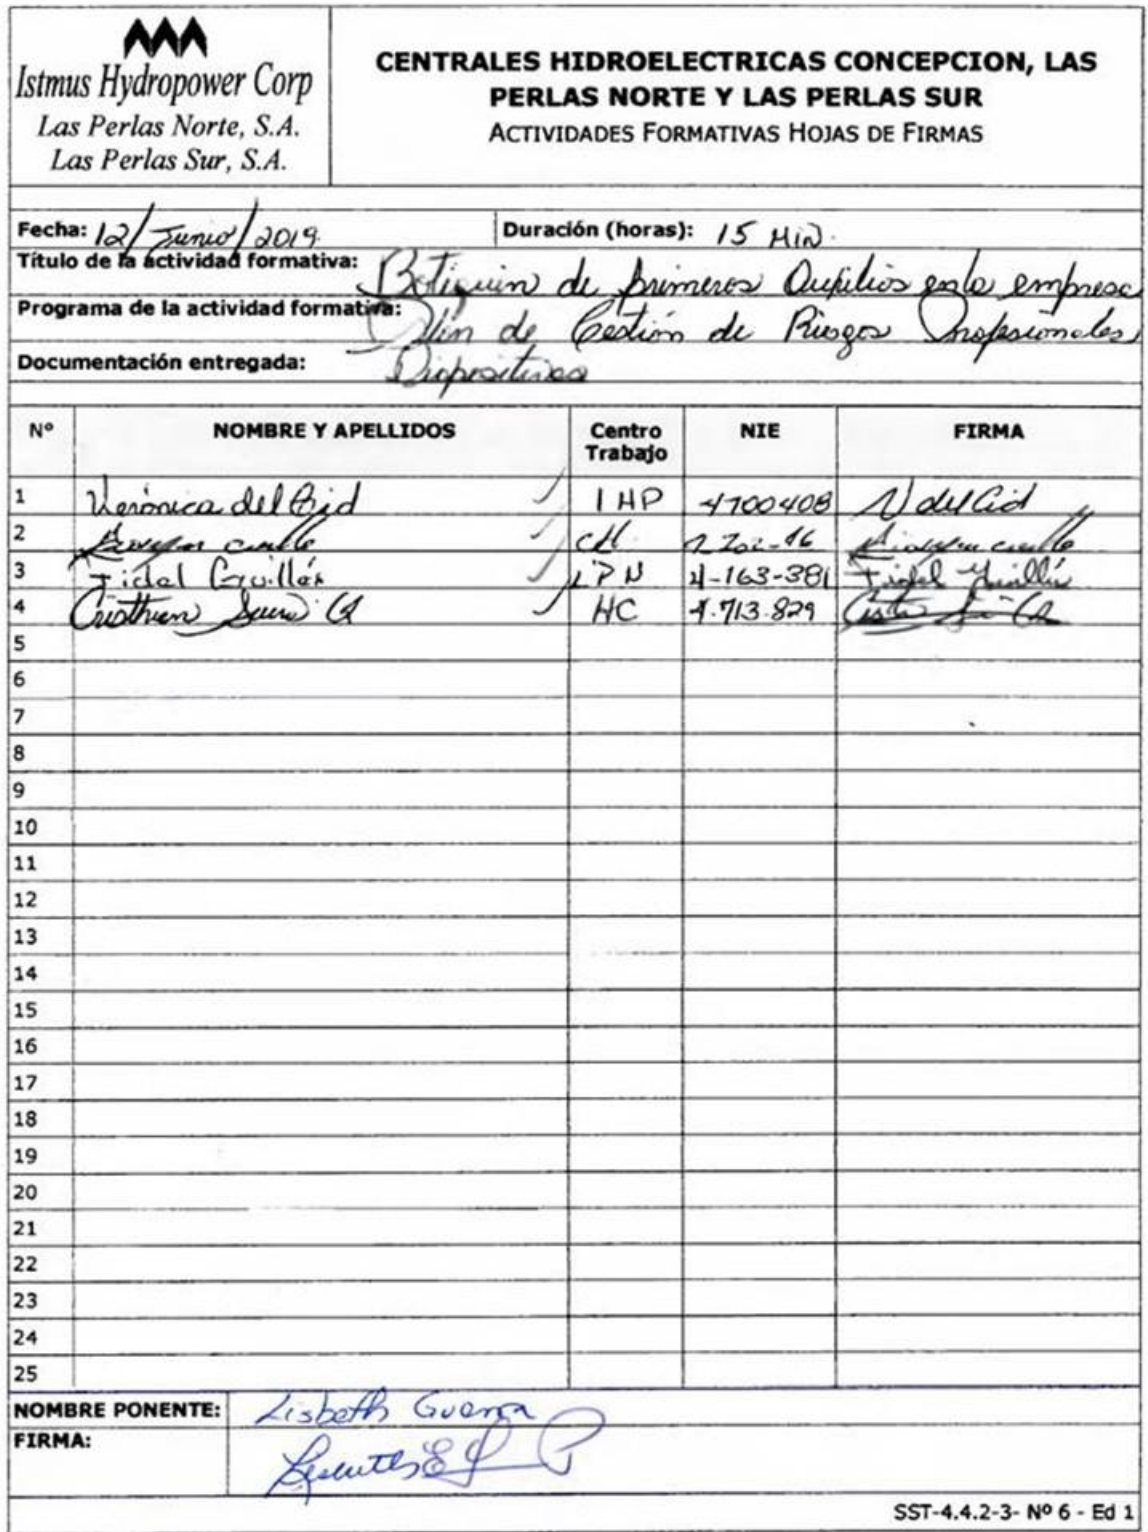 Istmus Hydropower Corp
Las Perlas Norte, S.A.
Las Perlas Sur, S.A.
CENTRALES HIDROELECTRICAS CONCEPCION, LAS
PERLAS NORTE Y LAS PERLAS SUR
ACTIVIDADES FORMATIVAS HOJAS DE FIRMAS
Fecha: 12/Junio/2019. Duración (horas): 15 Min.
Título de la actividad formativa: Botiquin de primeros Auxilios en la empresa
Programa de la actividad formativa: Plan de Gestión de Riesgos Profesionales
Documentación entregada: Diapositivas
Nº NOMBRE Y APELLIDOS Centro Trabajo NIE FIRMA
1 Verónica del Cid IHP 4700408 V del Cid
2 CH
3 Fidel Guillén LPN 4-163-381 Fidel Guillén
4 Cristhian HC 4-713-829
5
6
7
8
9
10
11
12
13
14
15
16
17
18
19
20
21
22
23
24
25
NOMBRE PONENTE: Lisbeth Guerra
FIRMA:
SST-4.4.2-3- Nº 6 - Ed 1